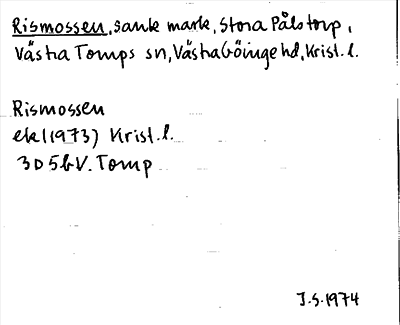 Rismossen, sank mark, Stora Pålstorp,
Västra Torups sn, Västra Göinge hd, Krist. l.
Rismossen
ek (1973) Krist. l.
3D5b V. Torup
J.S. 1974